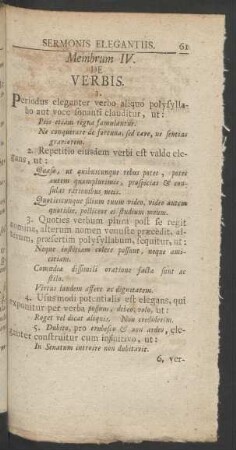 SERMONIS ELEGANTIIS. 61
Membrum IV.
DE
VERBIS.
1.
Periodus eleganter verbo aliquo polysylla-
bo aut voce sonanti clauditur, ut:
Piis etiam regna famulantur.
Ne conquirare de fortuna, sed cave, ne sentias
graviorem.
2. Repetitio eiusdem verbi est valde ele-
gans, ut:
Quaeso, ut quibuscunque rebus potes, potes
autem quamplurimis, prospicias & con-
sulas rationibus meis.
Quotiescunque filium tuum video, video autem
quotidie, polliceor ei studium meum.
3. Quoties verbum plura post se regit
nomina, alterum nomen venuste praecedit, al-
terum, praesertim polysyllabum, sequitur, ut:
Neque iustitiam colere possunt, neque ami-
citiam.
Comoedia dissimili oratione facta sunt ac
stilo.
Virtus laudem affert ac dignitatem.
4. Usus modi potentialis est elegans, qui
exponitur per verba possum, debeo, volo, ut:
Roget vel dicat aliquis. Non crediderim.
5. Dubito, pro erubesco & non ardeo, ele-
ganter construitur cum infinitivo, ut:
In Senatum introire non dubitavit.
6. Ver-